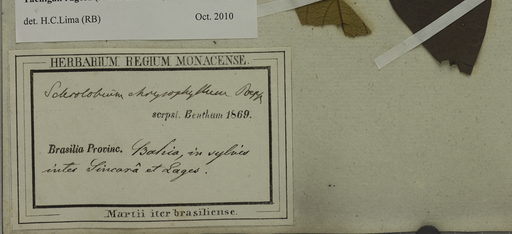 det. H.C.Lima (RB) Oct. 2010
HERBARIUM REGIUM MONACENSE.
Sclerolobium chrysophyllum Poepp
scrpsi. Bentham 1869.
Brasilia Provinc. Bahia, in sylvis
inter Sincorá et Lages.
Martii iter brasiliense.